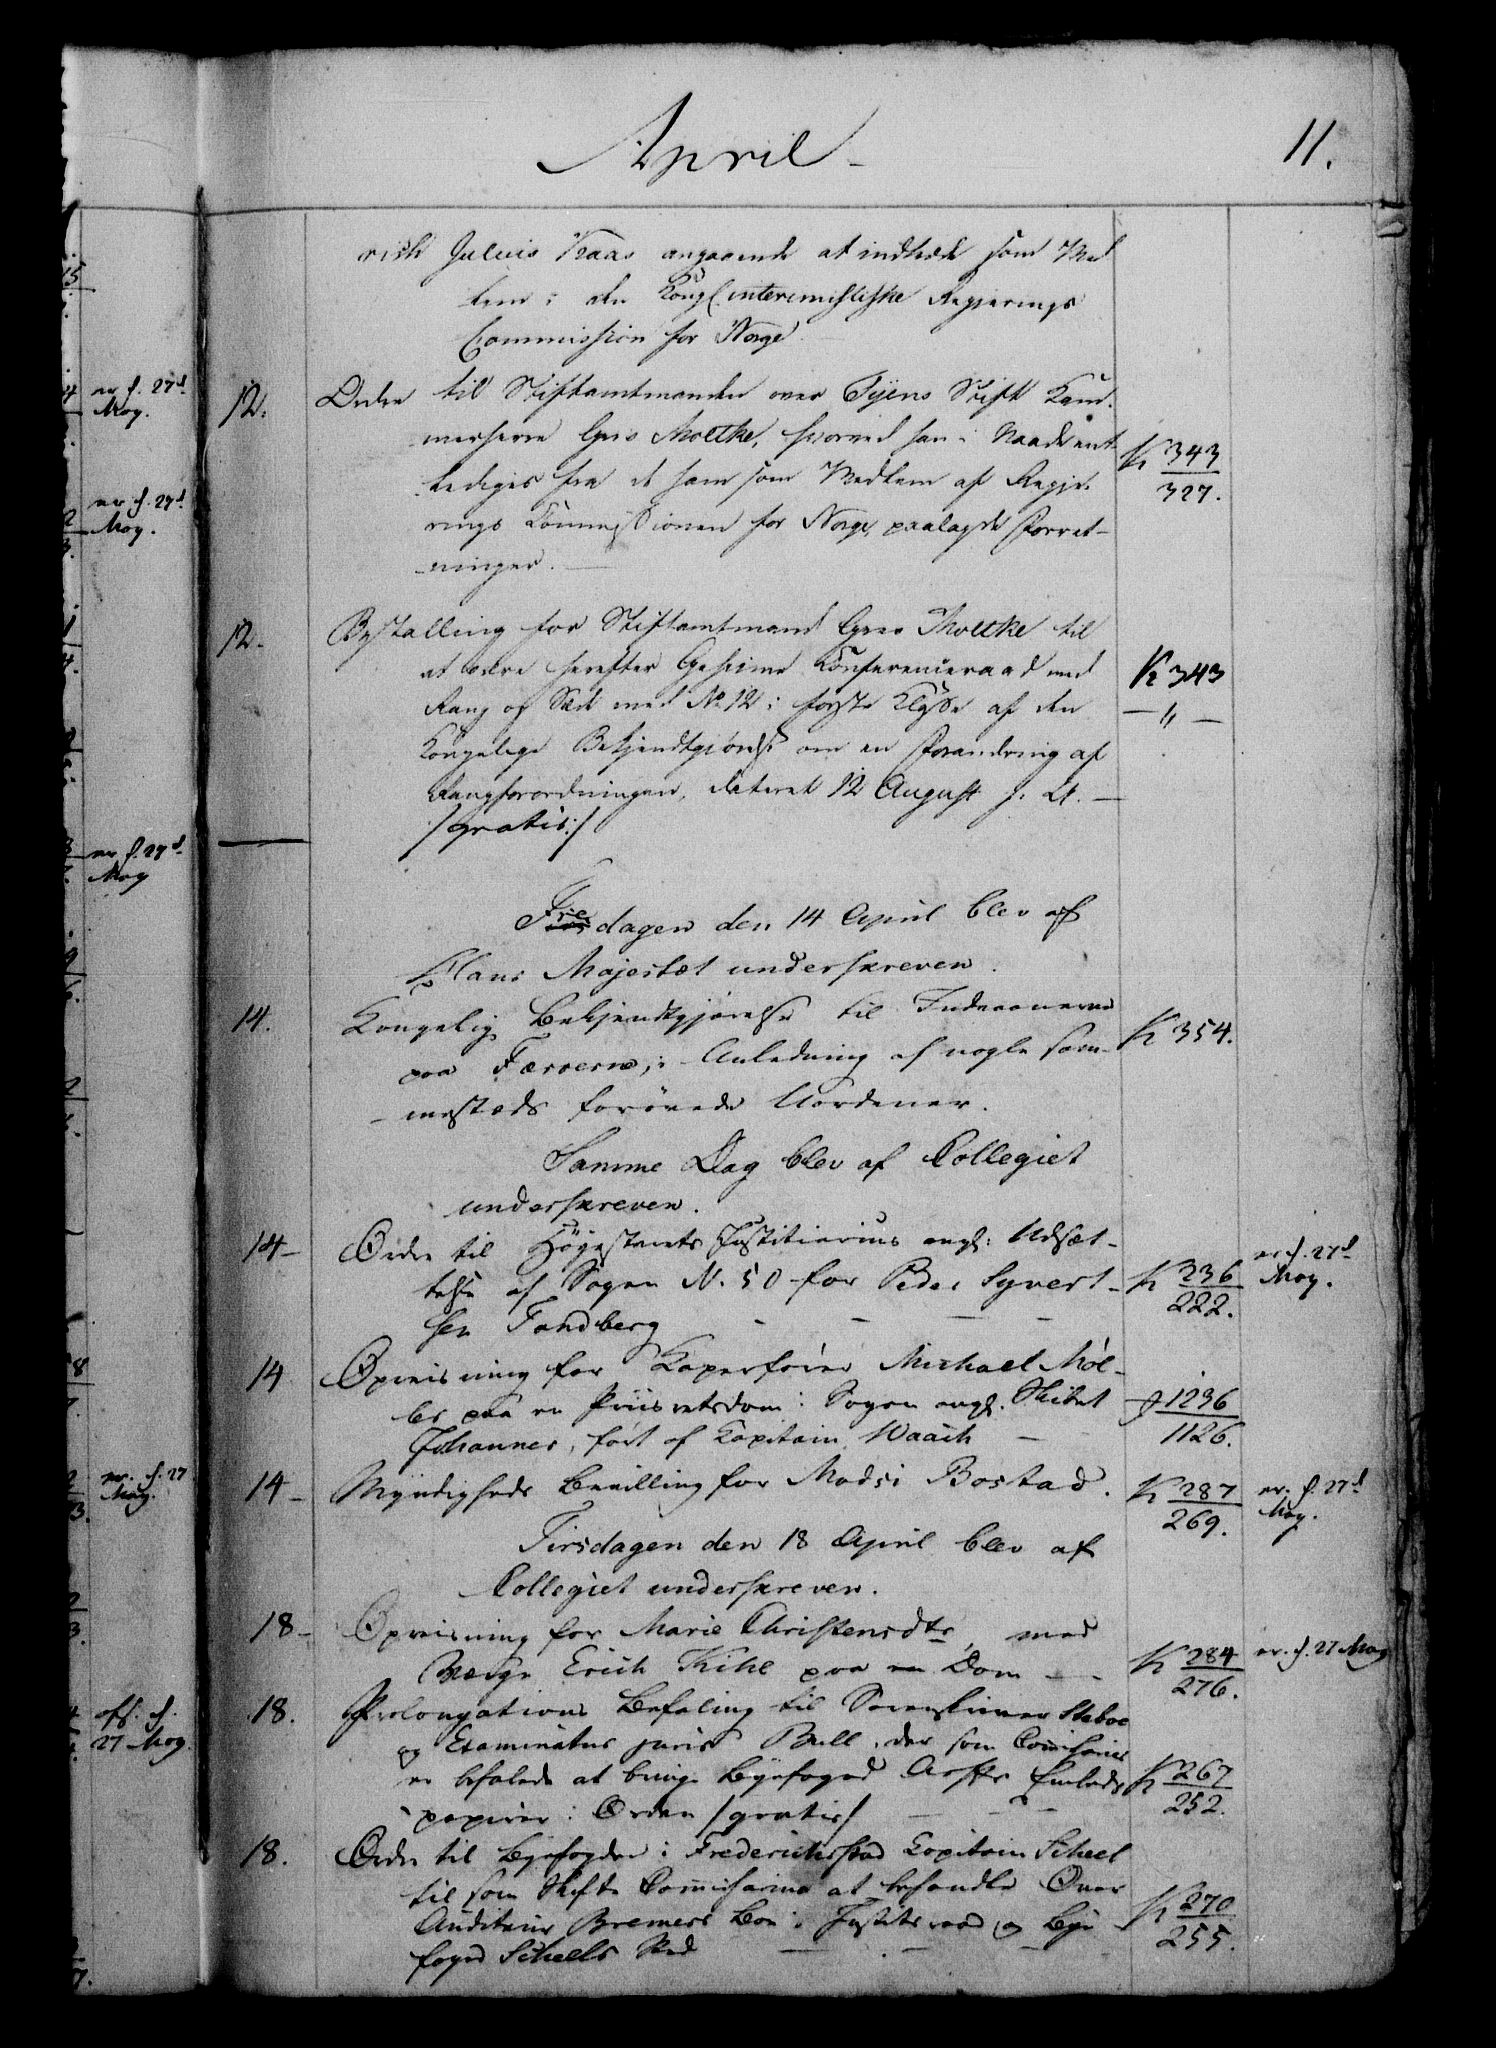 April
11.
rich Juluis Kaas angaaende at indtræde som Med
lem i den Kongl. interimistiske Regjerings
Commission for Norge
12. Ordre til Stiftamtmanden over Fyens Stift Kam-
merherre Greve Moltke, hvorved han i Naade ent-
lediges fra de ham som Medlem af Regje-
rings Commissionen for Norge, paalagde Forret-
ninger.
K 343
327.
12. Bestalling for Stiftamtmand Greve Moltke til
at være herefter Geheime Conferenceraad med
Rang og Sæde med No 12 i første Klasse af den
Kongelige Bekjendtgjørelse om en Forandring af
Rangforordningen, dateret 12 August f. A. —
/:gratis:/
K 343
— " —
Fredagen den 14 April blev af
Hans Majestæt underskreven.
14. Kongelig Bekjendtgjørelse til Indvaanerne
paa Færøerne, i Anledning af nogle sam-
mesteds forøvede Uordener.
K 354.
Samme Dag blev af Collegiet
underskreven.
14 - Ordre til Høyesterets Justitiarius angl: Udsæt-
telse af Sagen N. 50 for Peder Syvert-
sen Tandberg
K 236
222.
er f. 27d
May.
14 Opreisning for Kaperfører Michael Møl-
ler paa en Priisretsdom i Sagen angl. Skibet
Johannes, ført af Capitain Waach
J 1236
1126.
14 - Myndigheds Bevilling for Madsi Bostad.
K 287
269.
er. f. 27d
May.
Tirsdagen den 18 April blev af
Collegiet underskreven.
18 - Opreisning for Marie Christensdtr, med
Værge Erich Kihl paa en Dom
K 284
276.
er. f. 27 May
18. Prolongations Befaling til Sorenskriver Steboe
og Examinatus juris Bull, der som Commisairer
er befalede at bringe Byefoged Embeds
papirer i Orden /gratis/
K 267
252.
18. Ordre til Byefogden i Frederichstad Capitain Scheel
til som Skifte Commisarius at behandle Over
Auditeur Bremers Boe i Justitsraad og Bye
foged Scheels Sted
K 270
255.
er f. 27d
May.
er f. 27d
May.
er f. 27d
May
er. f. 27
May.
f.
27 May.